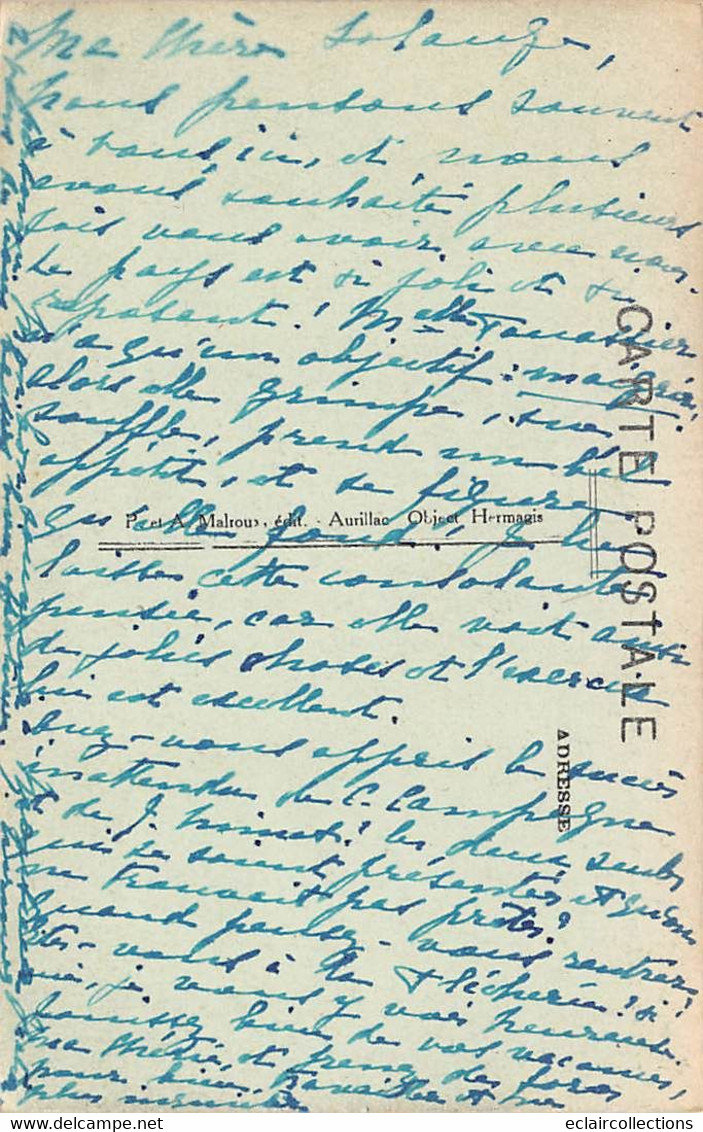 Ma chère Solange,
nous pensons souvent
à vous, ici, et nous
avons souhaité plusieurs
fois vous avoir avec nous.
Le pays est si joli et si
reposant! Melle
n'a qu'un objectif: maigrir,
alors elle grimpe, sue
souffle, prend un bel
appétit, et se figure
qu'elle fond! Je lui
laisse cette consolante
pensée, car elle voit ainsi
de jolies choses et l'exercice
lui est excellent.
avez-vous appris le succès
inattendu de C. Campagne
et de J. les deux seuls
qui se soient présentés et qu'on
ne trouvait pas prêts?
Quand pensez-vous rentrer?
êtes-vous à la si
oui, je vous y vois heureuse.
Jouissez bien de vos vacances,
ma chérie, et prenez des forces
pour bien travailler et me
plus
P. et A. Malroux, édit. - Aurillac Object Hermagis
CARTE POSTALE
ADRESSE
eclaircollections